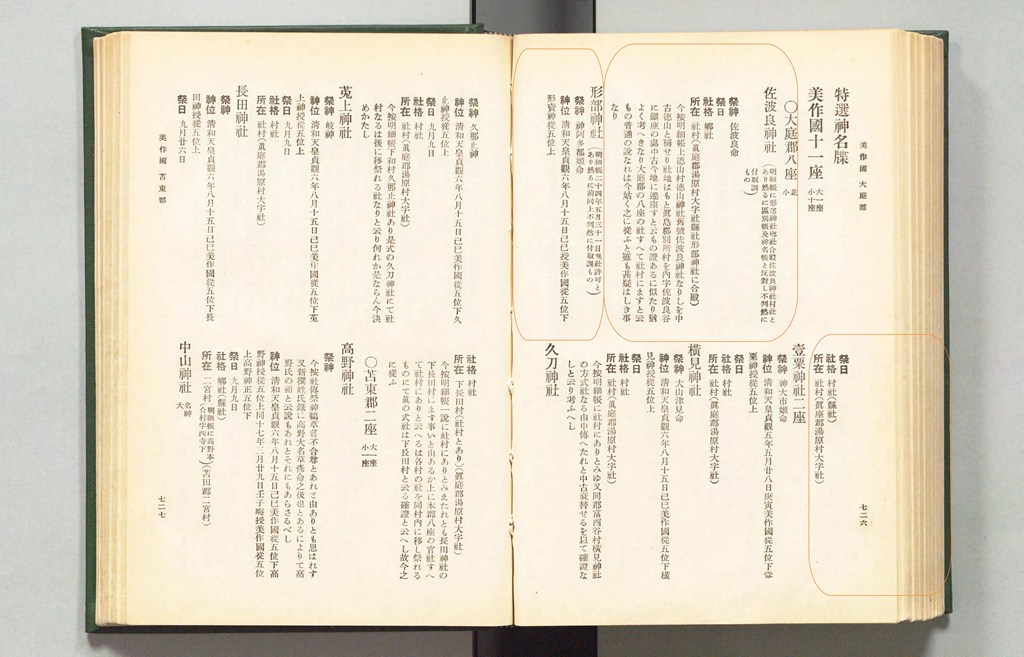 美作國 大庭郡
特選神名牒
美作國十一座 大一座 小十座
〇大庭郡八座 並小
佐波良神社 明細帳に形部神社郷社合殿佐波良神社村社と
あり然るに區別帳及神名帳と反對し不判然に
付取調もの
祭神 佐波良命
祭日
社格 郷社
所在 社村(眞庭郡湯原村大字社縣社形部神社に合殿)
今按明細帳上德山村德山神社舊號佐波良神社なりしを中
古德山と稱せり社地はもと眞島郡別所村を内字佐波良谷
に鎭座の處中古今地に遷座すと云もの證あるに似たり猶
よく考へきなり大庭郡の八座の社すへて社村にますと云
もの普通の説なれは今姑く之に從ふと雖も甚疑はしき事
なり
形部神社 (明細帳二十四年五月三十一日縣社許可と
あり然るに前同上不判然に付取調もの)
祭神 神阿多都姬命
神位 清和天皇貞觀六年八月十五日己巳授美作國從五位下
形賣神從五位上
祭日
社格 村社(縣社)
所在 社村(眞庭郡湯原村大字社)
壹粟神社二座
祭神 神大市姬命
神位 清和天皇貞觀五年五月廿八日庚寅美作國從五位下壹
粟神授從五位上
祭日
社格 村社
所在 社村(眞庭郡湯原村大字社)
橫見神社
祭神 大山津見命
神位 清和天皇貞觀六年八月十五日己巳美作國從五位下橫
見神授從五位上
祭日
社格 村社
所在 社村(眞庭郡湯原村大字社)
今按明細帳に社村にありとみゆ又同郡富西谷村橫見神社
の方式社なる由申傳へたれと中古衰替せるを以て確證な
しと云り考ふへし
久刀神社
七二六
祭神 久那止神
神位 清和天皇貞觀六年八月十五日己巳美作國從五位下久
止神授從五位上
祭日 九月九日
社格 村社
所在 社村(眞庭郡湯原村大字社)
今按明細帳下和村久那止神社あり是式の久刀神社にて社
村なるは後に移祭れる社なりと云り何れか是ならん今決
めかたし
菟上神社
祭神 岐神
神位 清和天皇貞觀六年八月十五日己巳美作國從五位下菟
上神授從五位上
祭日 九月九日
社格 村社
所在 社村(眞庭郡湯原村大字社)
長田神社
祭神
神位 清和天皇貞觀六年八月十五日己巳美作國從五位下長
田神授從五位上
祭日 九月廿六日
社格 村社
所在 下長田村(今社村とあり)(眞庭郡湯原村大字社)
今按明細帳一説に社村にありとみえたれとも長田神社の
下長田村にます事いと由あるか上に本郡八座の官社すへ
て社村にありと云へるは各村の社を同村内に移し祭れる
ものにて眞の式社は下長田村と云る確證と云へし故今之
に從ふ
〇苫東郡二座 大一座 小一座
高野神社
祭神
今按社傳祭神鵜草葺不合尊とあれと由ありとも思はれす
又新撰姓氏錄に高野大名草彥命之後也とあるによりて高
野氏の祖と云説もあれとそれにもあらさるへし
神位 清和天皇貞觀六年八月十五日己巳美作國從五位下高
野神授從五位上同十七年三月廿九日壬子庵授美作國從五位
上高野神正五位下
祭日 九月九日
社格 郷社(縣社)
所在 二宮村(明細帳に高野本
合村字西寺下)(苫田郡二宮村)
中山神社 名神大
美作國 苫東郡
七二七